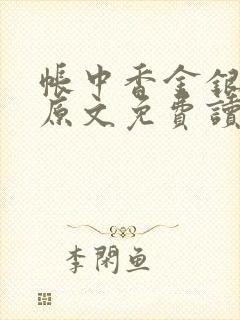 帳中香金銀
原文免費讀
李閑魚